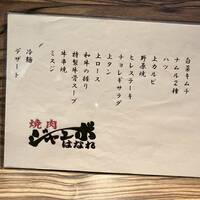 白菜キムチ
ナムル2種
ハツ
上カルビ
野菜焼
ヒレステーキ
チョレギサラダ
上タン
上ロース
和牛の握り
特製牛骨スープ
牛串焼
ミスジ
冷麺
デザート
焼肉
ジャンボ
はなれ